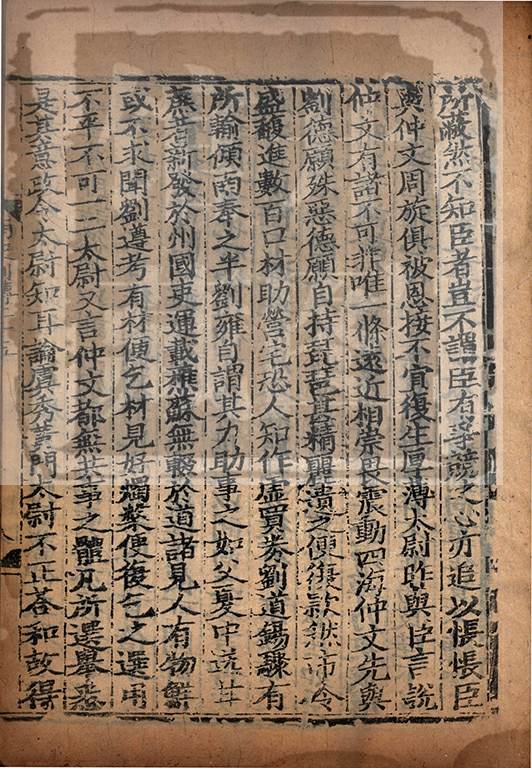 所蔽然不知臣者豈不謂臣有爭競之心亦追以悵悵臣
與仲文周旋俱被恩接不宜復生厚薄太尉昨與臣言說
仲文有諸不可非唯一條遠近相崇畏震動四海仲文先與
劉德願殊惡德願自持琵琶甚精麗遺之便復款然市令
盛馥進數百口材助營宅恐人知作虛買券劉道錫驟有
所輸傾南奉之半劉雍自謂其力助事之如父夏中送甘
蔗若新發於州國吏運載樵蘇無輟於道諸見人有物鮮
或不求聞劉遵考有材便乞材見好燭槃便復乞之選用
不平不可一二太尉又言仲文都無共事之體凡所選舉悉
是其意政令太尉知耳論虞秀黃門太尉不正荅和故得